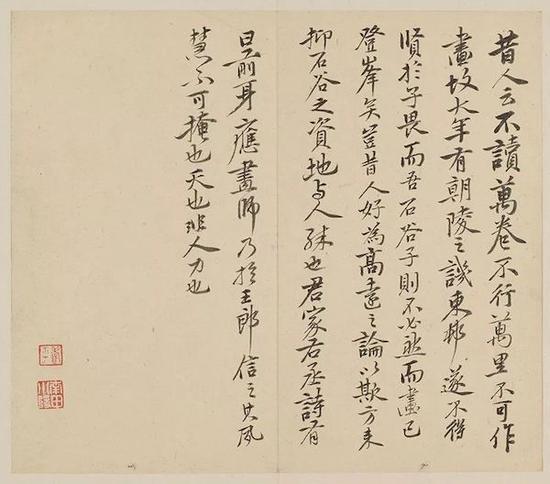 昔人云不讀萬卷不行萬里不可作
畫故大年有朝陵之譏東邨遂不得
賢於子畏而吾石谷子則不必然而畫已
登峯矣豈昔人好為高遠之論以欺方來
抑石谷之資地与人殊也君家右丞詩有
曰前身應畫師乃於王郎信之其風
慧不可掩也天也非人力也